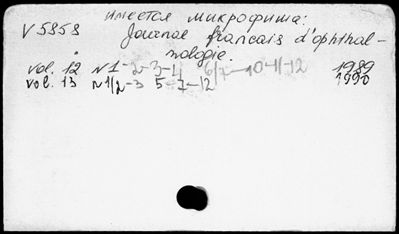 имеется микрофиша:
V 5858
Journal francais d'ophthal-
mologie.
vol. 12 N1-2-3-4 6/7-10-11-12 1989
vol. 13 N1/2-3 5-7-12 1990